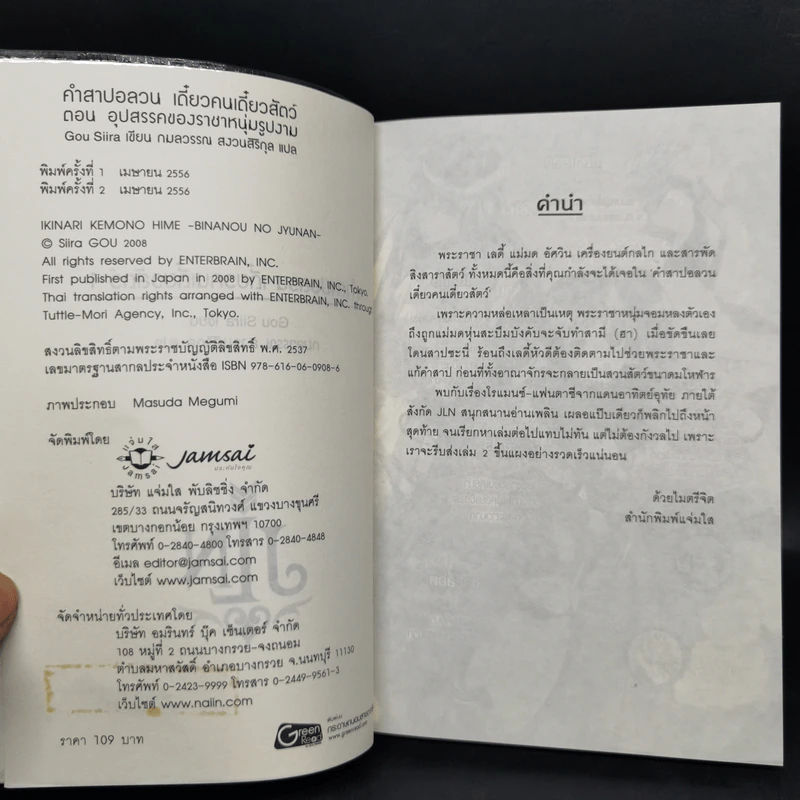 คำสาปอลวน เดี๋ยวคนเดี๋ยวสัตว์
ตอน อุปสรรคของราชาหนุ่มรูปงาม
Gou Siira เขียน กมลวรรณ สงวนสิริกุล แปล
พิมพ์ครั้งที่ 1 เมษายน 2556
พิมพ์ครั้งที่ 2 เมษายน 2556
IKINARI KEMONO HIME -BINANOU NO JYUNAN-
© Siira GOU 2008
All rights reserved by ENTERBRAIN, INC.
First published in Japan in 2008 by ENTERBRAIN, INC., Tokyo.
Thai translation rights arranged with ENTERBRAIN, INC. through
Tuttle-Mori Agency, Inc., Tokyo.
สงวนลิขสิทธิ์ตามพระราชบัญญัติลิขสิทธิ์ พ.ศ. 2537
เลขมาตรฐานสากลประจำหนังสือ ISBN 978-616-06-0908-6
ภาพประกอบ Masuda Megumi
จัดพิมพ์โดย
แจ่มใส
Jamsai
Jamsai
บริษัท แจ่มใส พับลิชชิ่ง จำกัด
285/33 ถนนจรัญสนิทวงศ์ แขวงบางขุนศรี
เขตบางกอกน้อย กรุงเทพฯ 10700
โทรศัพท์ 0-2840-4800 โทรสาร 0-2840-4848
อีเมล editor@jamsai.com
เว็บไซต์ www.jamsai.com
จัดจำหน่ายทั่วประเทศโดย
บริษัท อมรินทร์ บุ๊ค เซ็นเตอร์ จำกัด
108 หมู่ที่ 2 ถนนบางกรวย-จงถนอม
ตำบลมหาสวัสดิ์ อำเภอบางกรวย จ.นนทบุรี 11130
โทรศัพท์ 0-2423-9999 โทรสาร 0-2449-9561-3
เว็บไซต์ www.naiin.com
ราคา 109 บาท
Green
Read
คำนำ
พระราชา เลดี้ แม่มด อัศวิน เครื่องยนต์กลไก และสารพัด
สิงสาราสัตว์ ทั้งหมดนี้คือสิ่งที่คุณกำลังจะได้เจอใน 'คำสาปอลวน
เดี๋ยวคนเดี๋ยวสัตว์'
เพราะความหล่อเหลาเป็นเหตุ พระราชาหนุ่มจอมหลงตัวเอง
ถึงถูกแม่มดหุ่นสะบึมบังคับจะจับทำสามี (ฮา) เมื่อขัดขืนเลย
โดนสาปซะนี่ ร้อนถึงเลดี้หัวดีต้องติดตามไปช่วยพระราชาและ
แก้คำสาป ก่อนที่ทั้งอาณาจักรจะกลายเป็นสวนสัตว์ขนาดมโหฬาร
พบกับเรื่องโรแมนซ์-แฟนตาซีจากแดนอาทิตย์อุทัย ภายใต้
สังกัด JLN สนุกสนานอ่านเพลิน เผลอแป๊บเดียวก็พลิกไปถึงหน้า
สุดท้าย จนเรียกหาเล่มต่อไปแทบไม่ทัน แต่ไม่ต้องกังวลไป เพราะ
เราจะรีบส่งเล่ม 2 ขึ้นแผงอย่างรวดเร็วแน่นอน
ด้วยไมตรีจิต
สำนักพิมพ์แจ่มใส